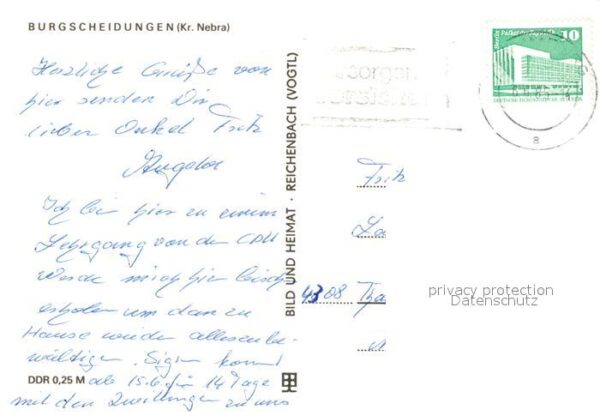 BURGSCHEIDUNGEN (Kr. Nebra)
Herzliche Grüße von
hier senden Dir
lieber Onkel Fritz
Angela
Ich bin hier zu einem
Lehrgang von der CDU
Werde mich hier bisch
erholen um dann zu
Hause wieder alles zu be-
wältigen. Sigrn kommt
DDR 0,25 M ab 15.6. für 14 Tage
mit den Zwillingen zu uns
BILD UND HEIMAT · REICHENBACH (VOGTL)
10
DEUTSCHE DEMOKRATISCHE REPUBLIK
a
Fritz
La
4308 Tha
privacy protection
Datenschutz